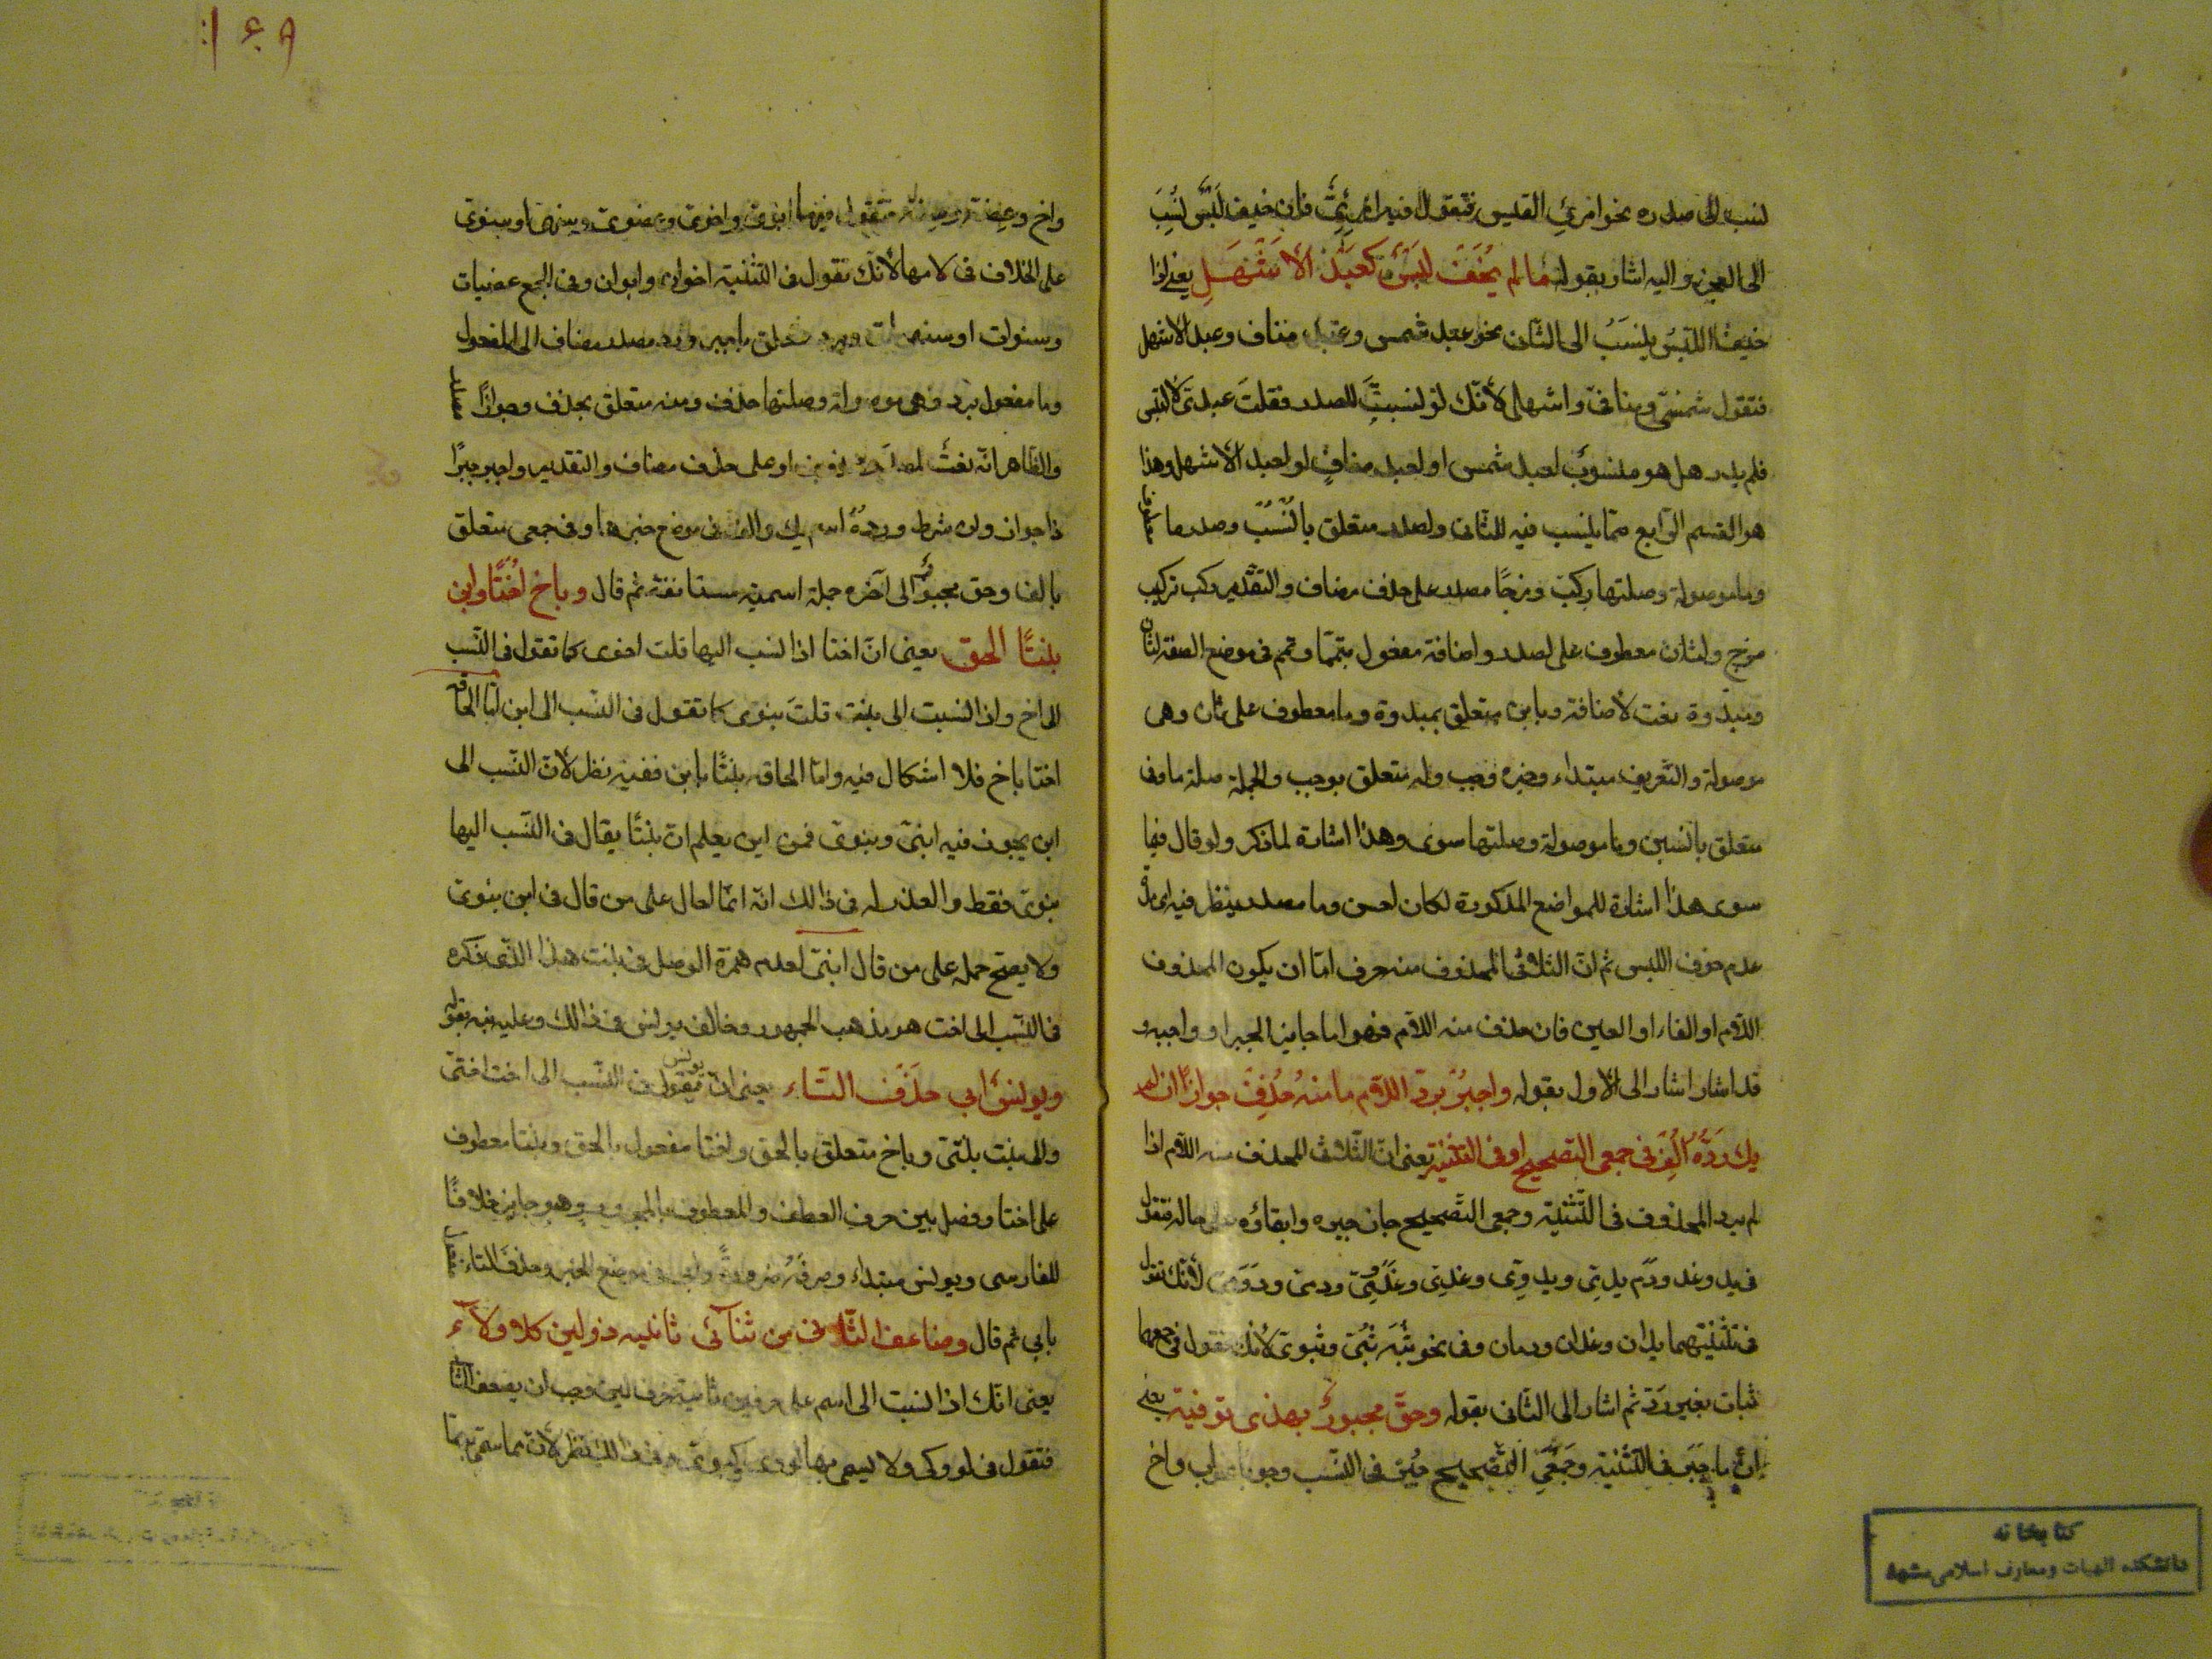 لنسب الى صدره نحو امرئ القيس فتقول فيه امرئيّ فان خيف لبس نسب
الى العجز واليه اشار بقوله ما لم يُخَف لبسٌ كعبد الاشهل يعنى اذا
خيف اللبس ينسب الى الثانى نحو عبد شمس وعبد مناف وعبد الاشهل
فتقول شمسىّ ومنافىّ واشهلى لانّك لو نسبت للصدر فقلت عبدىّ لالتبس
فلم يدر هل هو منسوب لعبد شمس او لعبد مناف او لعبد الاشهل وهذا
هو القسم الرّابع ممّا ينسب فيه للثانى ولصدر متعلق بانسب وصدر ما
وما موصولة وصلتها ركب ومزجًا مصدر على حذف مضاف والتقدير ركب تركيب
مزج ولثان معطوف على لصدر واضافة مفعول بتمّما وتمم فى موضع الصفة لثان
ومبدوة نعت لاضافة وبابن متعلق بمبدوة وما معطوف على ثان وهى
موصولة والتعريف مبتداء وخبره وجب وله متعلق بوجب والجملة صلة ما وفى
متعلق بانسبن وما موصولة وصلتها سوى وهذا اشارة لما ذكر ولو قال فيما
سوى هذا اشارة للمواضع المذكورة لكان احسن وما مصدر ينظر فيه اى مدّة
عدم خوف اللبس ثم انّ الثلاثى المحذوف منه حرف امّا ان يكون المحذوف
اللام او الفاء او العين فان حذف منه اللام فهو اما جايز الجبر او واجبه و
قد اشار اشار الى الاول بقوله واجبر بردّ اللام ما منه حُذِف جوازًا ان لم
يك ردّه اُلِف فى جمعى التصحيح او فى التثنيه يعنى انّ الثلاثى المحذف منه اللام اذا
لم يرد المحذوف فى التّثنية وجمعى التصحيح جاز جبره وابقاؤه على حاله فتقول
فى يد وغد ودم يدىّ ويدوىّ وغدىّ وغدوىّ ودمىّ ودموىّ لانّك تقول
فى تثنيتهما يدان وغدان ودمان وفى نحو ثبة ثبىّ وثبوىّ لانّك تقول فى جمعها
ثبات بغير ردّ ثم اشار الى الثانى بقوله وحقّ مجبورٌ بهذى توفية يعنى
انّ ما جبر فى التثنية وجمعى التصحيح جبر فى النسب وجوبا كاب واخ
كتابخانه
دانشكده الهيات ومعارف اسلامى مشهد
١٤٩
واخ وعضة وسنة فتقول فيها ابوىّ واخوىّ وعضوىّ وسنهىّ او سنوىّ
على الخلاف فى لامها لانّك تقول فى التثنية اخوان وابوان وفى الجمع عضيات
وسنوات او سنهات وبرد متعلق باجبر ورد مصدر مضاف الى المفعول
وما مفعول برد وهى موصولة وصلتها حذف ومنه متعلق بحذف وجوازًا مصدر
والظاهر انّه نعت لمصدر محذوف او على حذف مضاف والتقدير واجبر جبرًا
ذا جواز وان شرط وردّه اسم يك والف فى موضع خبرها وفى جمعى متعلق
بالف وحق مجبور الى آخره جملة اسمية مستانفة ثم قال وباخ اُختًا وبابن
بنتًا الحق يعنى انّ اختا اذا نسب اليها قلت اخوى كما تقول فى النسب
الى اخ واذا نسبت الى بنت قلت بنوى كما تقول فى النسب الى ابن امّا الحاقه
اختا باخ فلا اشكال فيه وامّا الحاقه بنتًا بابن ففيه نظر لانّ النسب الى
ابن يجوز فيه ابنىّ وبنوىّ فمن اين يعلم انّ بنتًا يقال فى النسب اليها
بنوىّ فقط والعذر له فى ذالك انّه انّما احال على من قال فى ابن بنوىّ
ولا يصحّ حمله على من قال ابنىّ لعدم همزة الوصل فى بنت هذا الذى ذكره
فى النسب الى اخت هو مذهب الجمهور وخالف يونس فى ذالك وعليه نبه بقوله
ويونسٌ ابى حذف التّاء يعنى انّ يونس يقول فى النسب الى اخت اختىّ
والى بنت بنتىّ وباخ متعلق بالحق واختا مفعول بالحق وبنتا معطوف
على اختا وفصل بين حرف العطف والمعطوف بالمجرور وهو جايز خلافًا
للفارسى ويونس مبتداء وصرفه ضرورةً وابى فى موضع الخبر وحذف التاء مفعول
بابى ثم قال وضاعف الثّانى من ثنآئى ثانيه ذو لين كلا ولاآء
يعنى انّك اذا نسبت الى اسم على حرفين ثانيه حرف لين وجب ان يضعف الثانى
فتقول فى لو وكى ولا يسمى بها لووىّ وكيوىّ وفى ذالك نظر لانّ ما سمّى بما